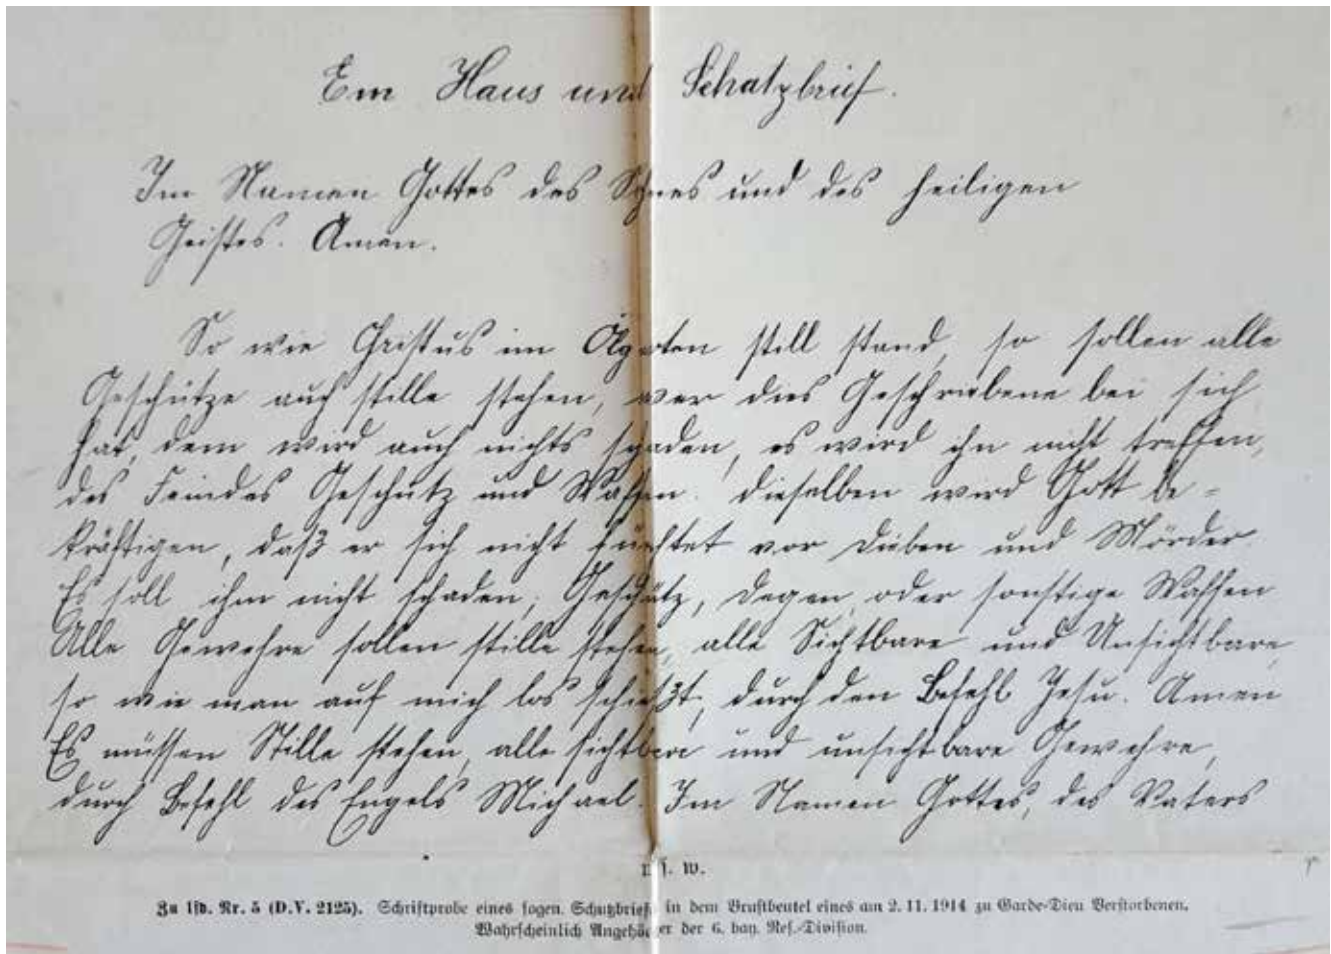 Ein Haus und Schatzbrief.
Im Namen Gottes des Sohnes und des heiligen
Geistes. Amen.
So wie Christus im Ölgarten still stand, so sollen alle
Geschütze auch stille stehen, wer dies Geschriebene bei sich
hat, dem wird auch nichts schaden, es wird ihn nicht treffen,
des Feindes Geschütz und Waffen. dieselben wird Gott be-
kräftigen, daß er sich nicht fürchtet vor Dieben und Mörder.
Es soll ihm nicht schaden, Geschütz, Degen oder sonstige Waffen
Alle Gewehre sollen stille stehen, alle Sichtbare und Unsichtbare,
so wie man auf mich los schießt, durch den Befehl Jesu. Amen
Es müssen Stille stehen, alle sichtbare und unsichtbare Gewehre,
durch Befehl des Engels Michael. Im Namen Gottes, des Vaters
u. s. w.
Zu lfd. Nr. 5 (D.V. 2125). Schriftprobe eines sogen. Schutzbriefs in dem Brustbeutel eines am 2. 11. 1914 zu Garde-Dieu Verstorbenen.
Wahrscheinlich Angehöriger der 6. bay. Res.-Division.